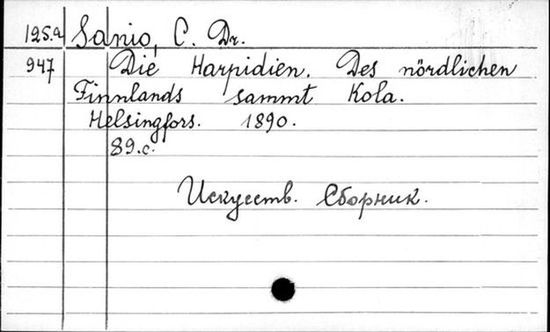 125.a Sanio, C. Dr.
947 Die Harpidien. Des nördlichen
Finnlands sammt Kola.
Helsingfors. 1890.
89.c.
Искусств. Сборник.